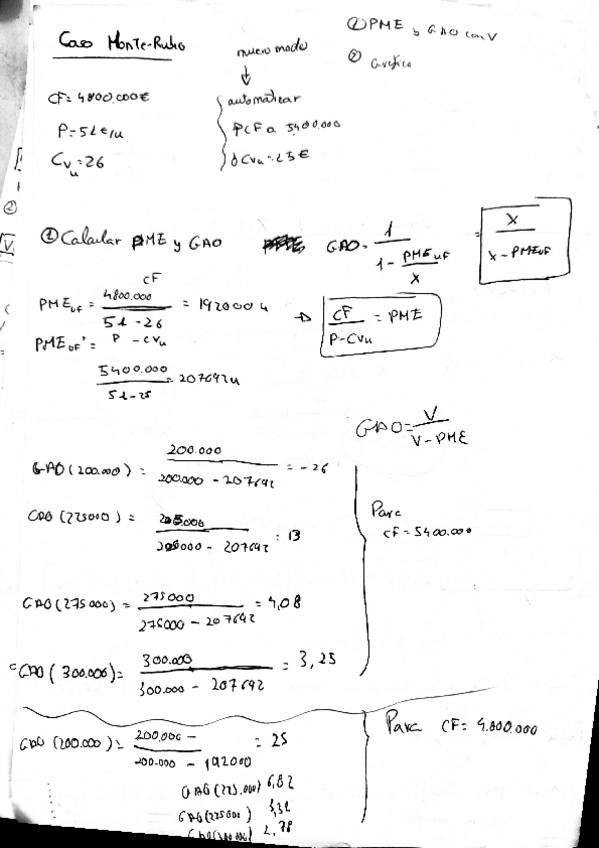 Caso Monte-Rubio
nuevo modo
① PME y GAO con V
② Grafico
CF = 4800.000€
automatizar
P = 51 €/u
↑CF a 5400.000
Cvu = 26
↓Cvu = 25 €
① Calcular PME y GAO
GAO = 1 / (1 - PMEuF / X) = X / (X - PMEuF)
PMEuF = CF 4800.000 / (51 - 26) = 192000 u → CF / (P - Cvu) = PME
P - Cvu
PMEuF' =
5400.000 / (51 - 25) = 207692 u
GAO = V / (V - PME)
GAO (200.000) = 200.000 / (200.000 - 207692) = -26
GAO (225000) = / ( - 207692) = 13
Para
CF = 5400.000
GAO (275000) = 275000 / (275000 - 207692) = 4,08
GAO (300.000) = 300.000 / (300.000 - 207692) = 3,25
Para CF = 4.800.000
GAO (200.000) = 200.000 / (200.000 - 192000) = 25
GAO (225.000) 6,82
GAO 3,31
GAO (300.000) 2,78